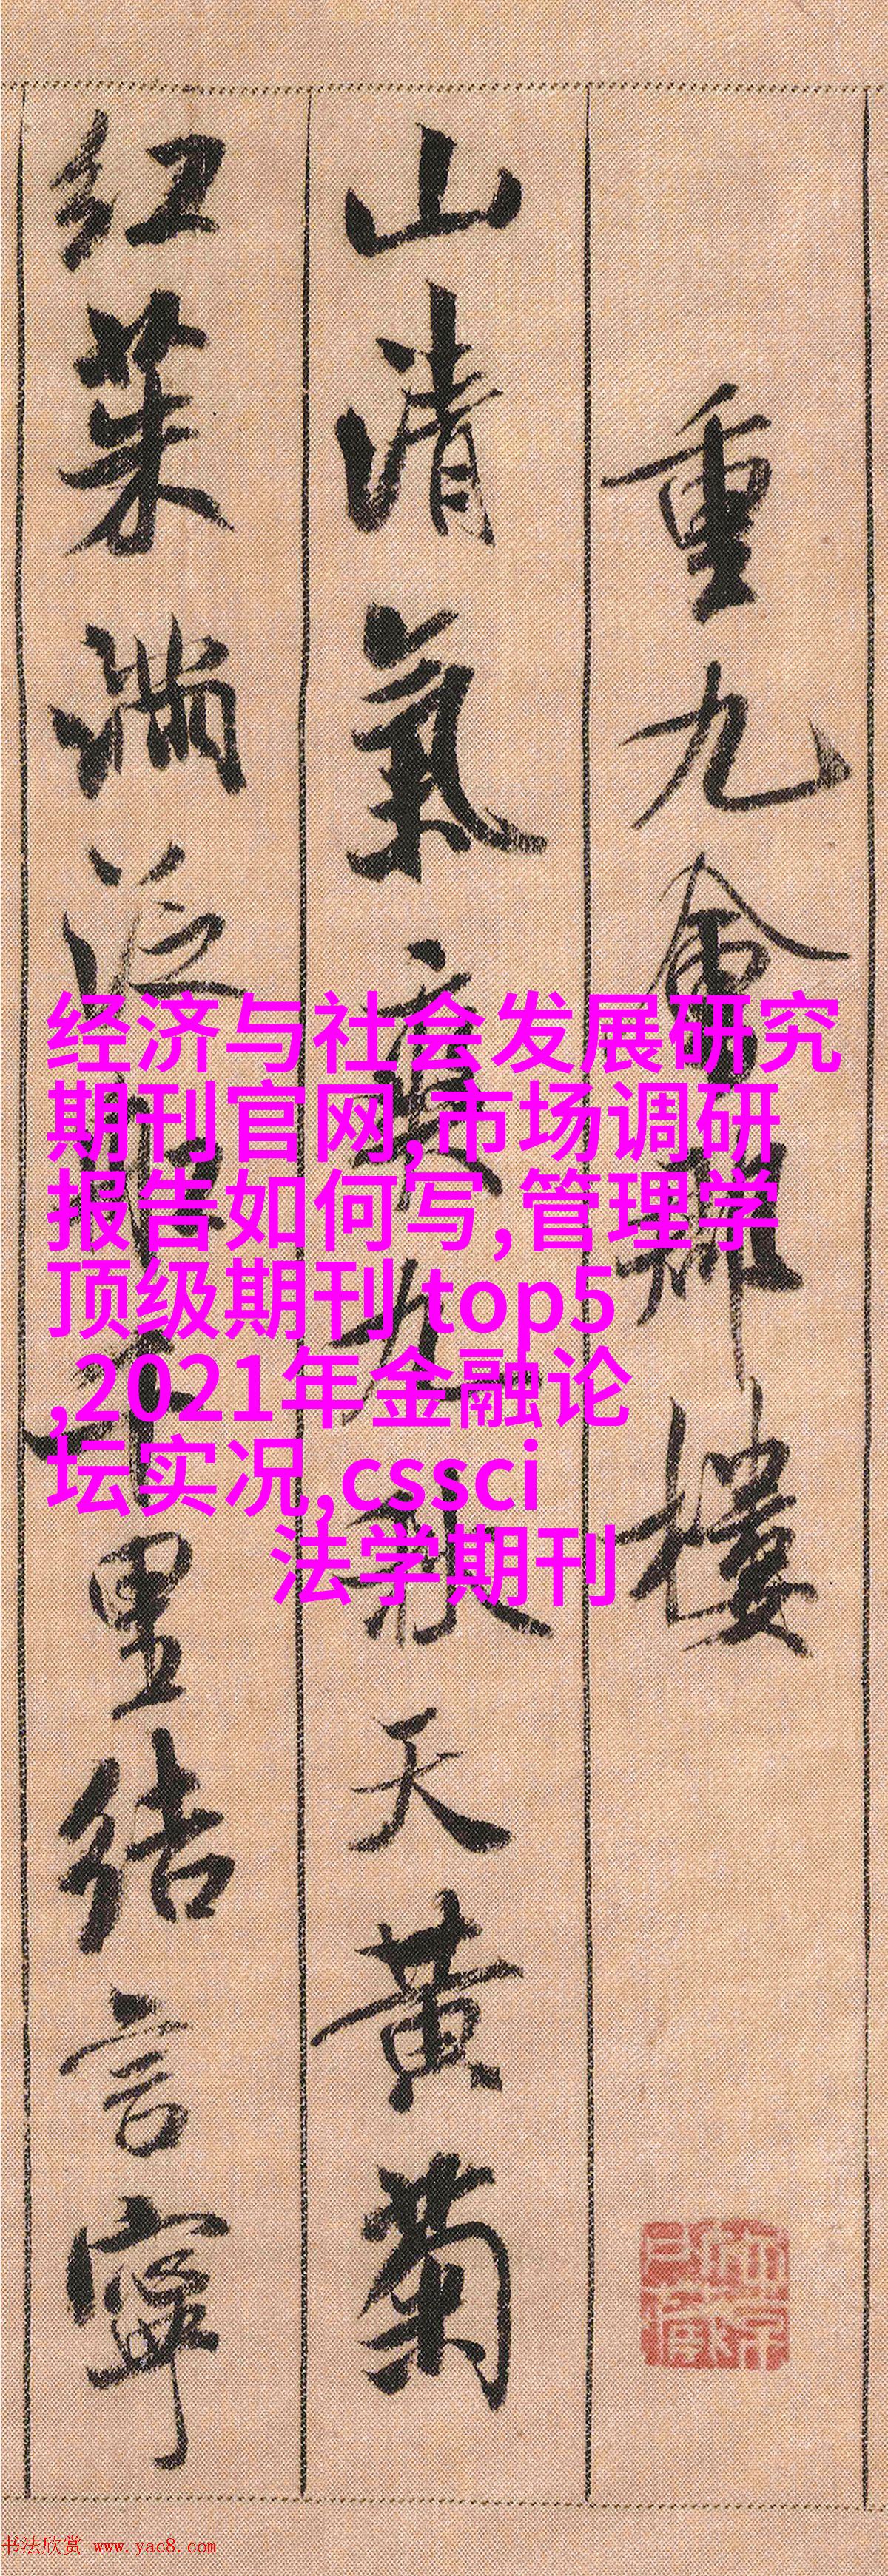 重九会郡楼
山清气爽九秋天黄菊
红茱满泛船千里结言宁
经济与社会发展研究
期刊官网,市场调研
报告如何写,管理学
顶级期刊 top5
,2021年金融论
坛实况,cssci
法学期刊
书法欣赏 www.yac8.com